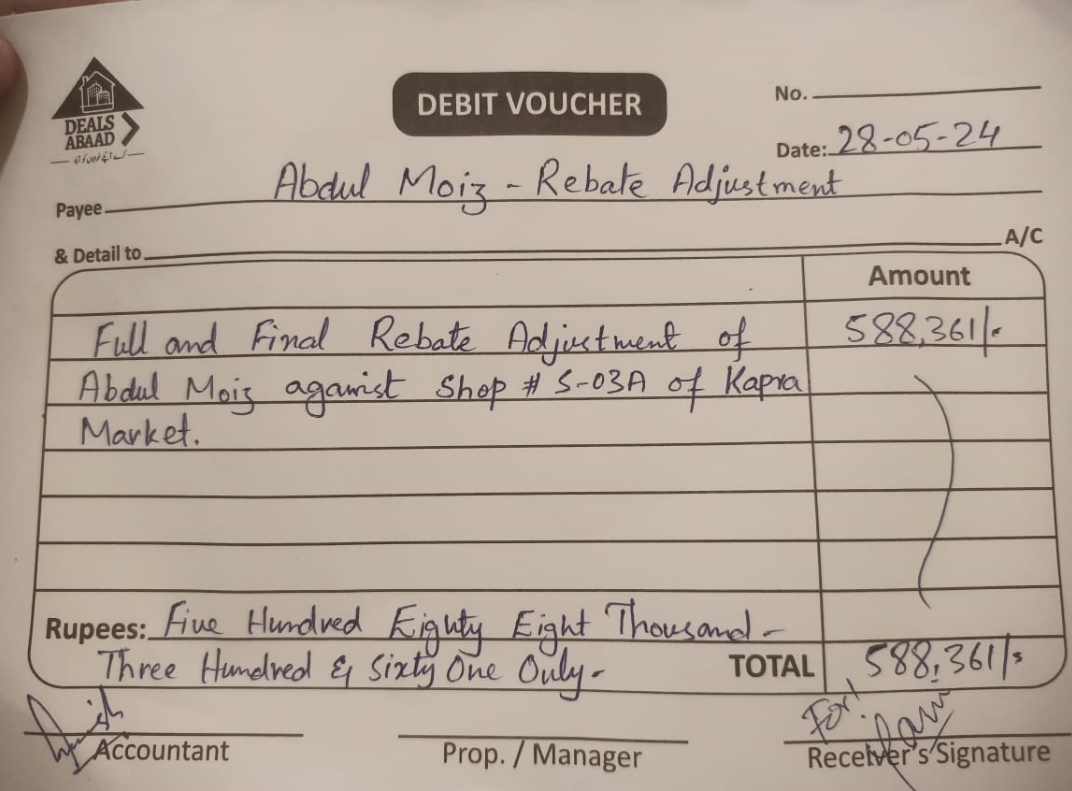 DEALS
ABAAD
DEBIT VOUCHER
No.
Date: 28-05-24
Payee Abdul Moiz - Rebate Adjustment
& Detail to A/C
Amount
Full and Final Rebate Adjustment of 588,361/-
Abdul Moiz against Shop # S-03A of Kapra
Market.
Rupees: Five Hundred Eighty Eight Thousand -
Three Hundred & Sixty One Only- TOTAL 588,361/-
For
Accountant Prop. / Manager Receiver's Signature